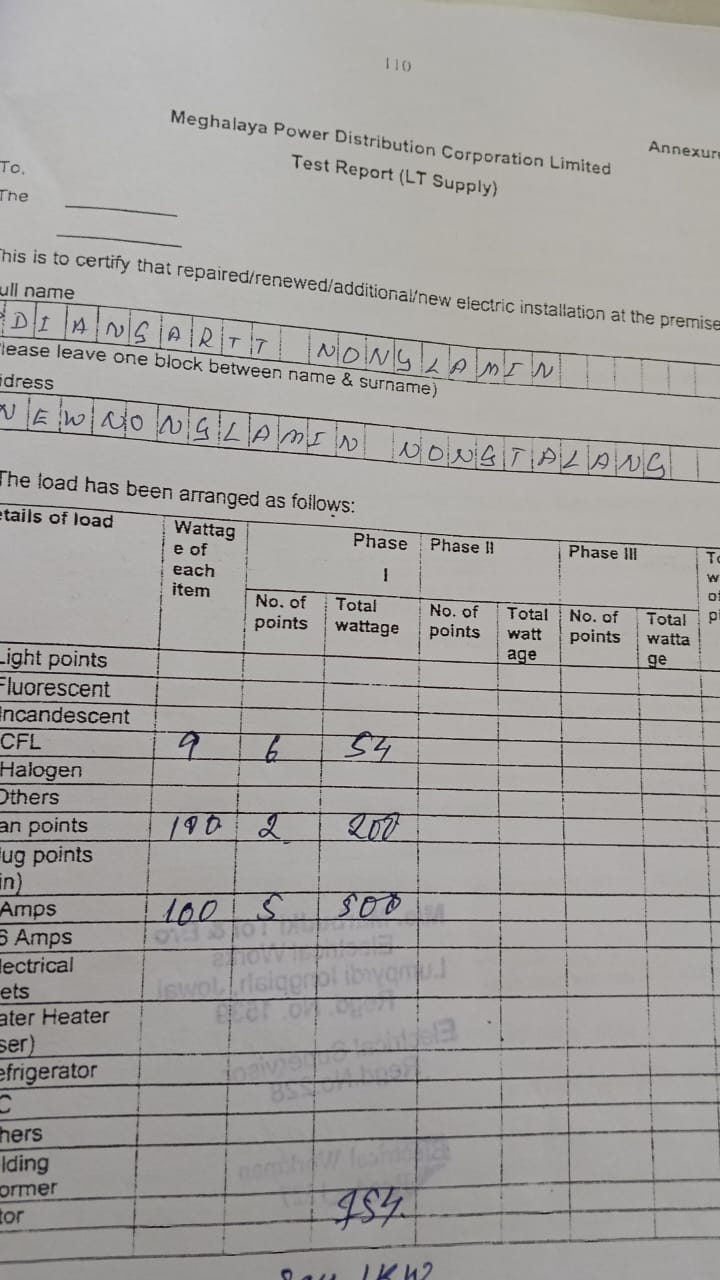 110
Meghalaya Power Distribution Corporation Limited
Annexur
Test Report (LT Supply)
To,
The
This is to certify that repaired/renewed/additional/new electric installation at the premise
ull name
DIANGARTT NONGLAMIN
lease leave one block between name & surname)
dress
NEWNONGLAMIN NONGTALANG
The load has been arranged as follows:
etails of load Wattag e of each item Phase I Phase II Phase III To w of p
No. of points Total wattage No. of points Total watt age No. of points Total watta ge
Light points
Fluorescent
Incandescent
CFL 9 6 54
Halogen
Others
an points 100 2 200
ug points
in)
Amps 100 5 500
6 Amps
lectrical
ets
ater Heater
ser)
efrigerator
C
hers
lding
ormer
tor
754
1KW